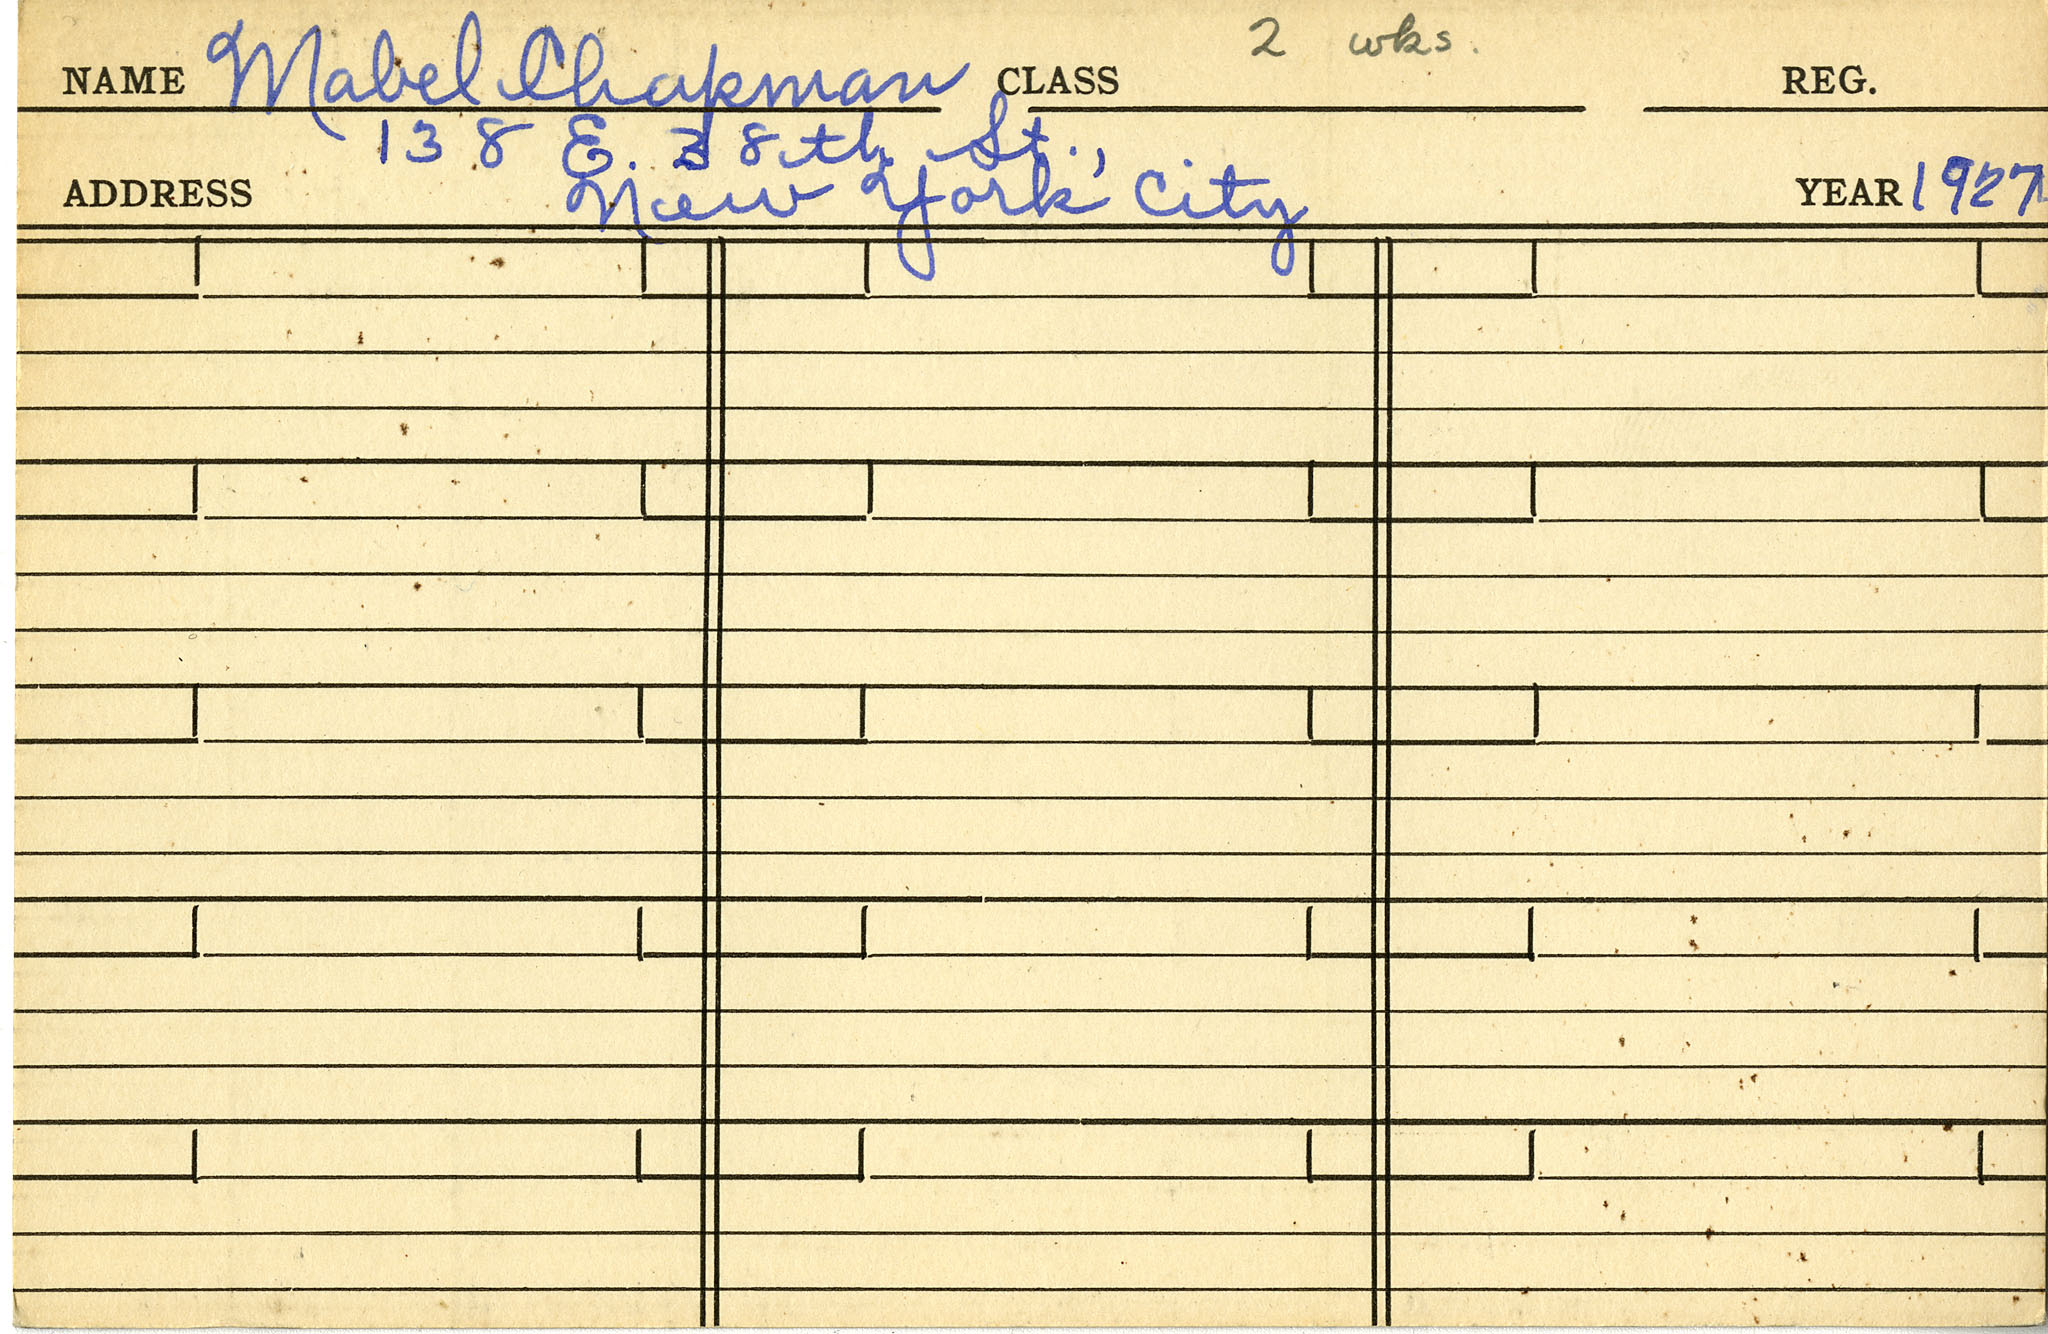 2 wks.
NAME Mabel Chapman CLASS REG.
138 E. 38th St.,
ADDRESS New York City YEAR 1927